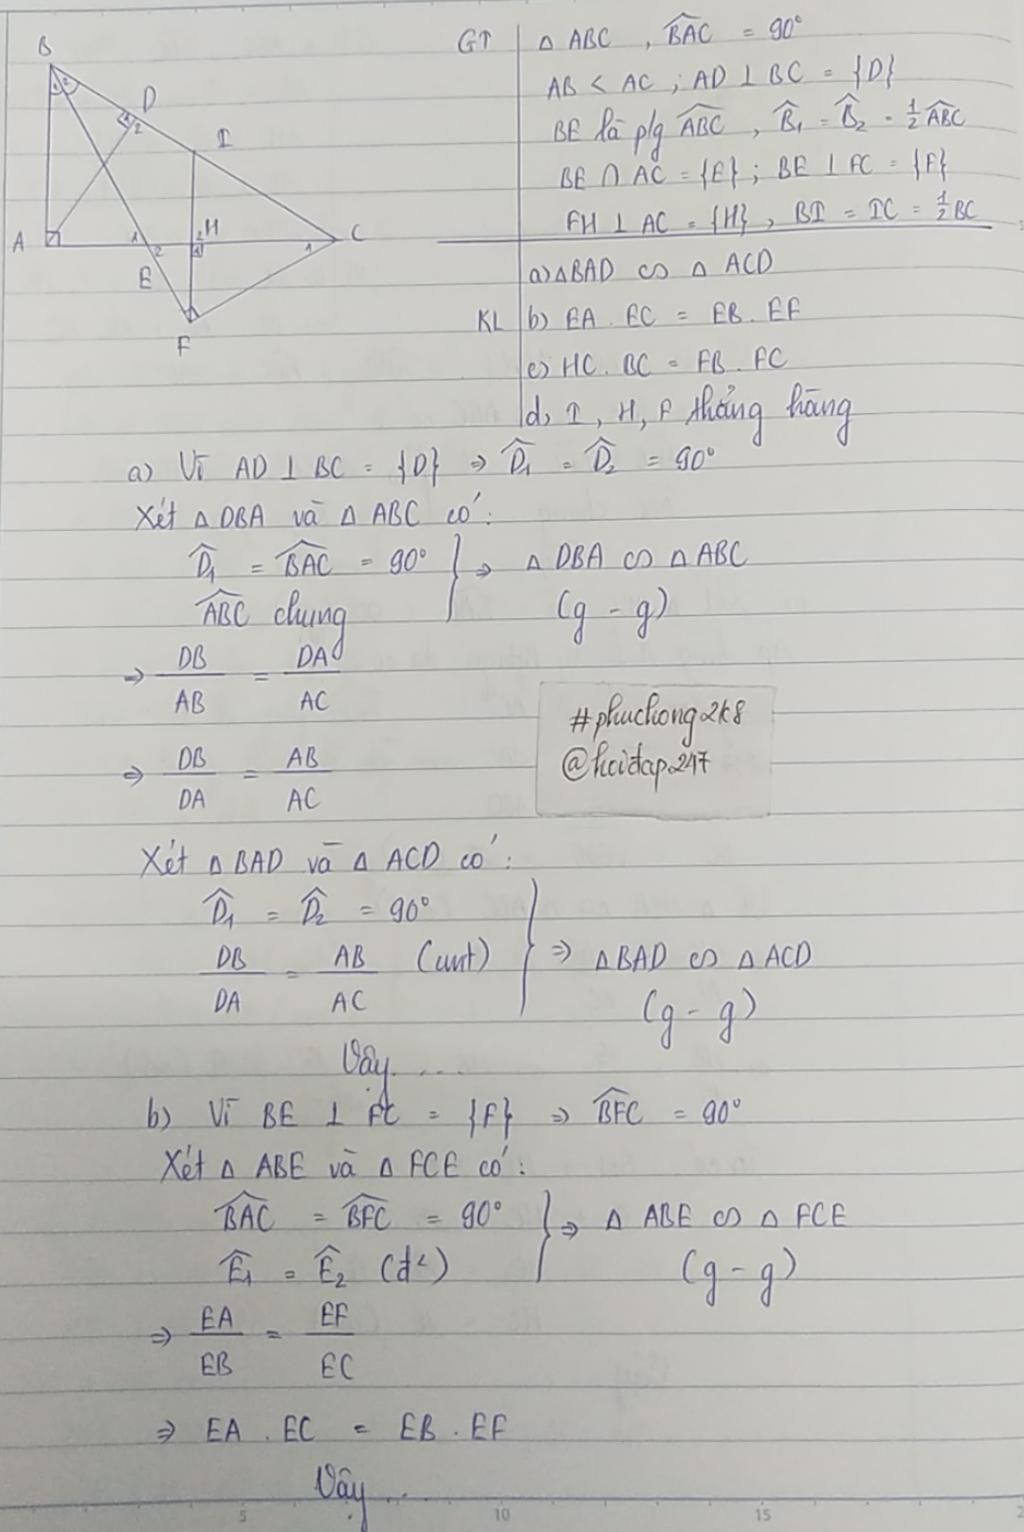 B
D
I
A
H
C
E
F
GT
Δ ABC , BAC = 90°
AB < AC ; AD ⊥ BC = {D}
BE là p/g ABC , B1 = B2 = 1/2 ABC
BE ∩ AC = {E} ; BE ⊥ FC = {F}
FH ⊥ AC = {H} , BI = IC = 1/2 BC
a) ΔBAD ∽ Δ ACD
KL b) EA . EC = EB . EF
c) HC . BC = FB . FC
d, I, H, F thẳng hàng
a) Vì AD ⊥ BC = {D} ⇒ D1 = D2 = 90°
Xét Δ DBA và Δ ABC có:
D1 = BAC = 90° } ⇒ Δ DBA ∽ Δ ABC
ABC chung (g - g)
⇒ DB/AB = DA/AC
⇒ DB/DA = AB/AC
#phuchong2k8
@hoidap247
Xét Δ BAD và Δ ACD có:
D1 = D2 = 90°
DB/DA = AB/AC (cmt) } ⇒ ΔBAD ∽ Δ ACD
(g - g)
Vậy....
b) Vì BE ⊥ FC = {F} ⇒ BFC = 90°
Xét Δ ABE và Δ FCE có:
BAC = BFC = 90° } ⇒ Δ ABE ∽ Δ FCE
E1 = E2 (đ²) (g - g)
⇒ EA/EB = EF/EC
⇒ EA . EC = EB . EF
Vậy ...
5 10 15